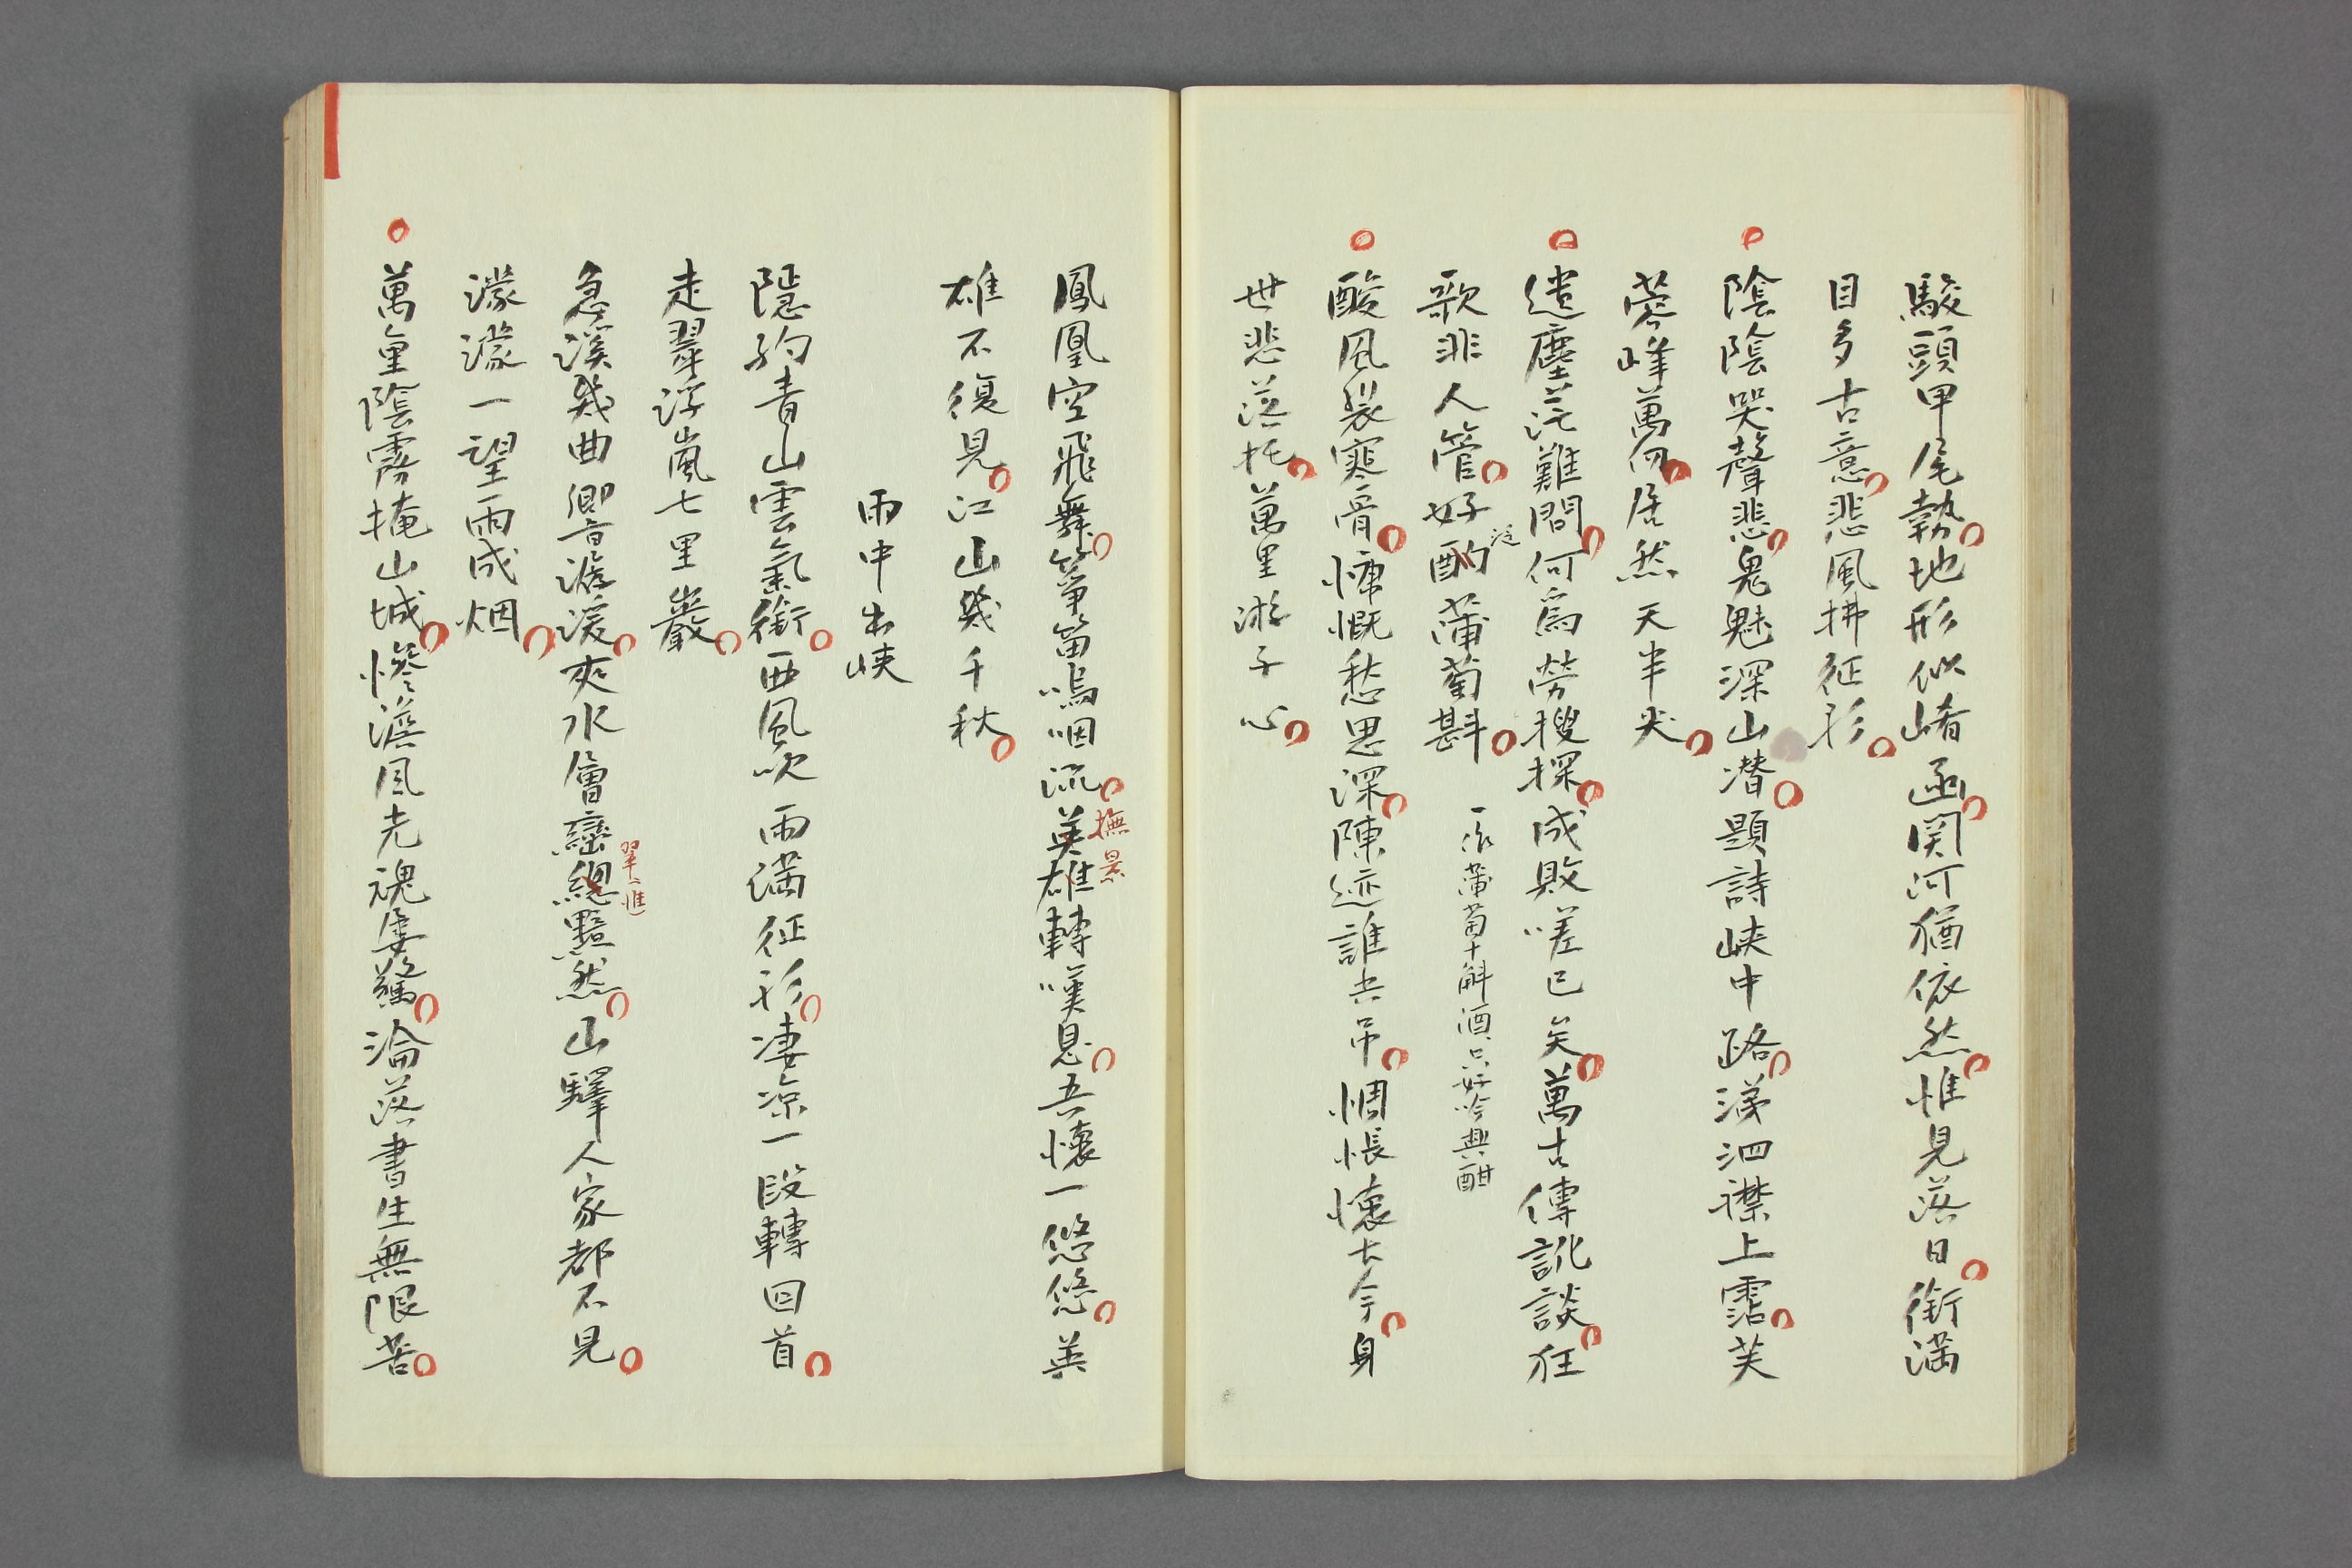 駿頭甲尾勢地形似崤函関河猶依然惟見落日銜満
目多古意悲風拂征衫
陰陰哭聲悲鬼魅深山潜題詩峡中路涕泗襟上霑芙
蓉峰萬仞居然天半尖
遺塵茫難問何為勞搜探成敗嗟已矣萬古傳訛談狂
歌非人管好酌蒲萄斟 一作蒲萄十斛酒只好吟興酣
酸風裂寒骨慷慨愁思深陳迹誰共吊惆悵懷古今身
世悲落托萬里游子心
鳳凰空飛舞箏笛嗚咽流英雄轉嘆息吾懷一悠悠英
撫景
雄不復見江山幾千秋
雨中出峡
隱約青山雲氣銜西風吹雨滿征衫凄凉一段轉回首
走翠浮嵐七里巖
急溪幾曲響潺湲夾水層巒總黯然山驛人家都不見
翠帷
濛濛一望雨成烟
萬重陰霧掩山城慘澹風光魂屢驚淪落書生無限苦